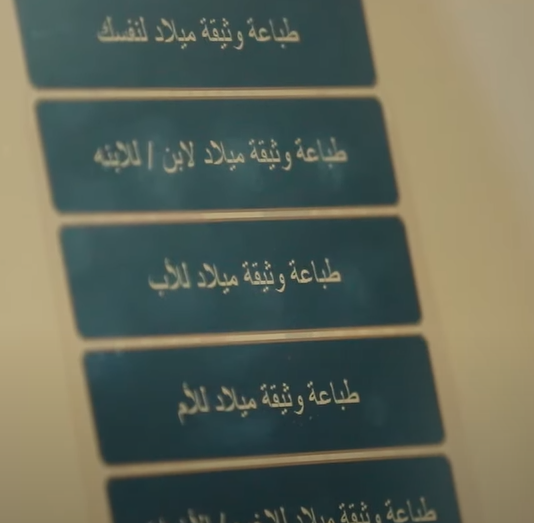 طباعة وثيقة ميلاد لنفسك
طباعة وثيقة ميلاد لابن / للابنه
طباعة وثيقة ميلاد للأب
طباعة وثيقة ميلاد للأم
طباعة وثيقة ميلاد